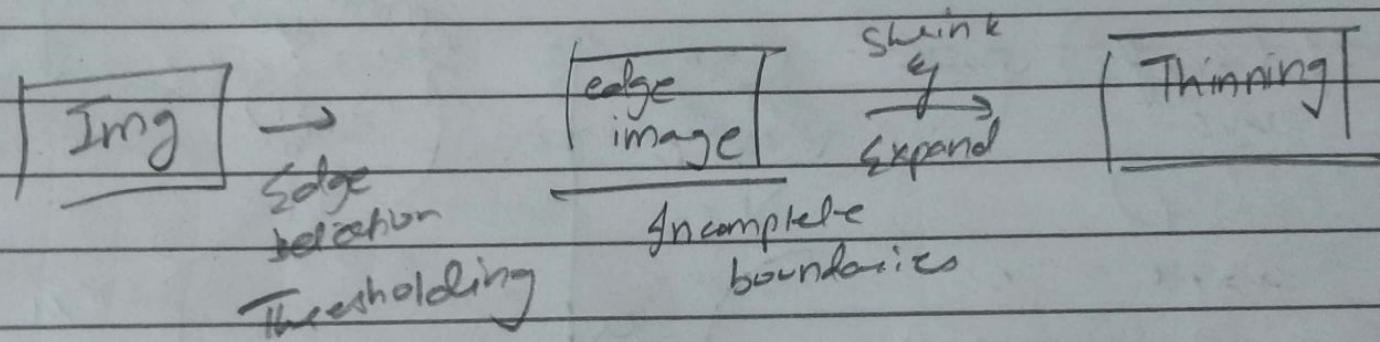 Img
→
Edge
detection
Thresholding
edge
image
Incomplete
boundaries
Shrink
&
→
Expand
Thinning